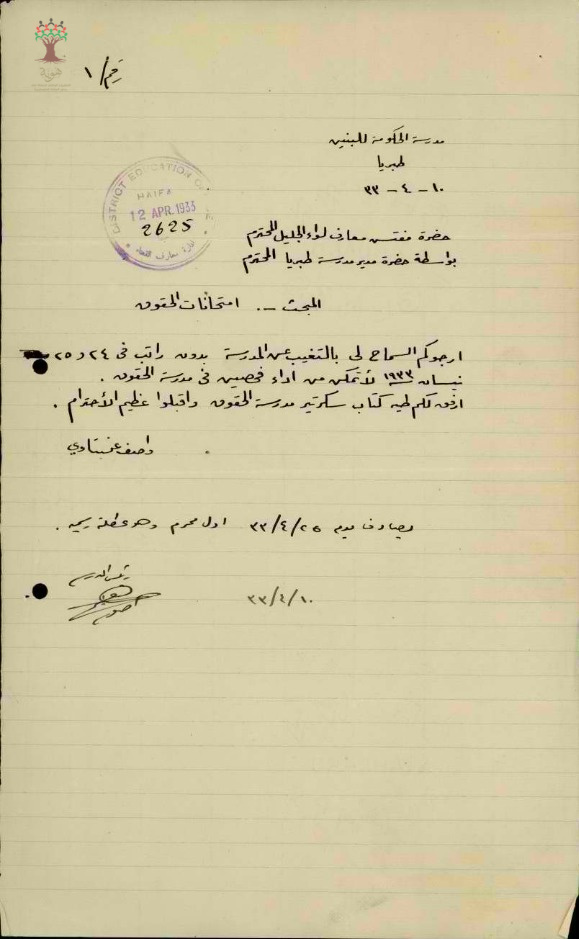 رقم / ١
مدرسة الحكومة للبنين
طبريا
١٠ - ٤ - ٣٣
DISTRICT EDUCATION OF
HAIFA
12 APR. 1933
2625
حضرة مفتش معارف لواء الجليل المحترم
بواسطة حضرة مدير مدرسة طبريا المحترم
المبحث :- امتحانات الحقوق
ارجوكم السماح لي بالتغيب عن المدرسة بدون راتب في ٢٤ و ٢٥
نيسان ١٩٣٣ لأتمكن من أداء فحصين في مدرسة الحقوق .
ارفق لكم طيه كتاب سكرتير مدرسة الحقوق واقبلوا عظيم الاحترام .
واصف عنبتاوي
يصادف يوم ٢٥/٤/٣٣ اول محرم وهو عطلة رسمية .
رئيس المدرسة
٣٣/٤/١٠